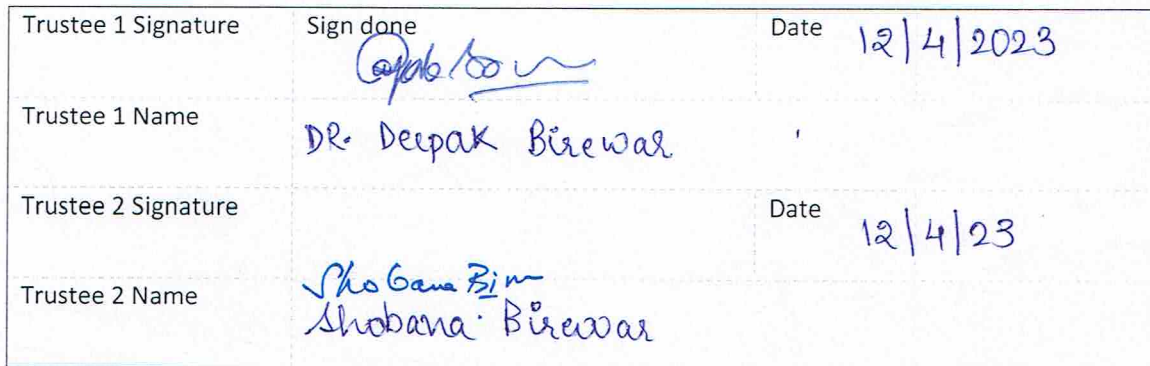 Trustee 1 Signature Sign done Date 12/4/2023
Trustee 1 Name DR. Deepak Birewar
Trustee 2 Signature Date 12/4/23
Shobana
Trustee 2 Name Shobana Birewar